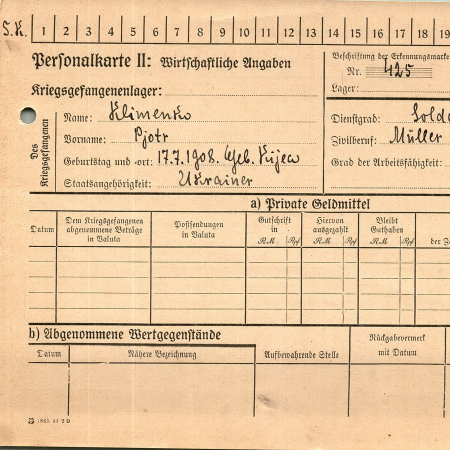 S.K. 1 2 3 4 5 6 7 8 9 10 11 12 13 14 15 16 17 18 19
Personalkarte II: Wirtschaftliche Angaben
Beschriftung der Erkennungsmarke
Nr. 425
Kriegsgefangenenlager:
Lager:
Des Kriegsgefangenen
Name: Klimenko
Dienstgrad: Solda
Vorname: Pjotr
Zivilberuf: Müller
Geburtstag und -ort: 17.7.1908. Geb. Kijew
Grad der Arbeitsfähigkeit:
Staatsangehörigkeit: Ukrainer
a) Private Geldmittel
Datum
Dem Kriegsgefangenen abgenommene Beträge in Valuta
Postsendungen in Valuta
Gutschrift in
RM Rpf
Hiervon ausgezahlt
RM Rpf
Bleibt Guthaben
RM Rpf
der Z
b) Abgenommene Wertgegenstände
Datum
Nähere Bezeichnung
Aufbewahrende Stelle
Rückgabevermerk
mit Datum